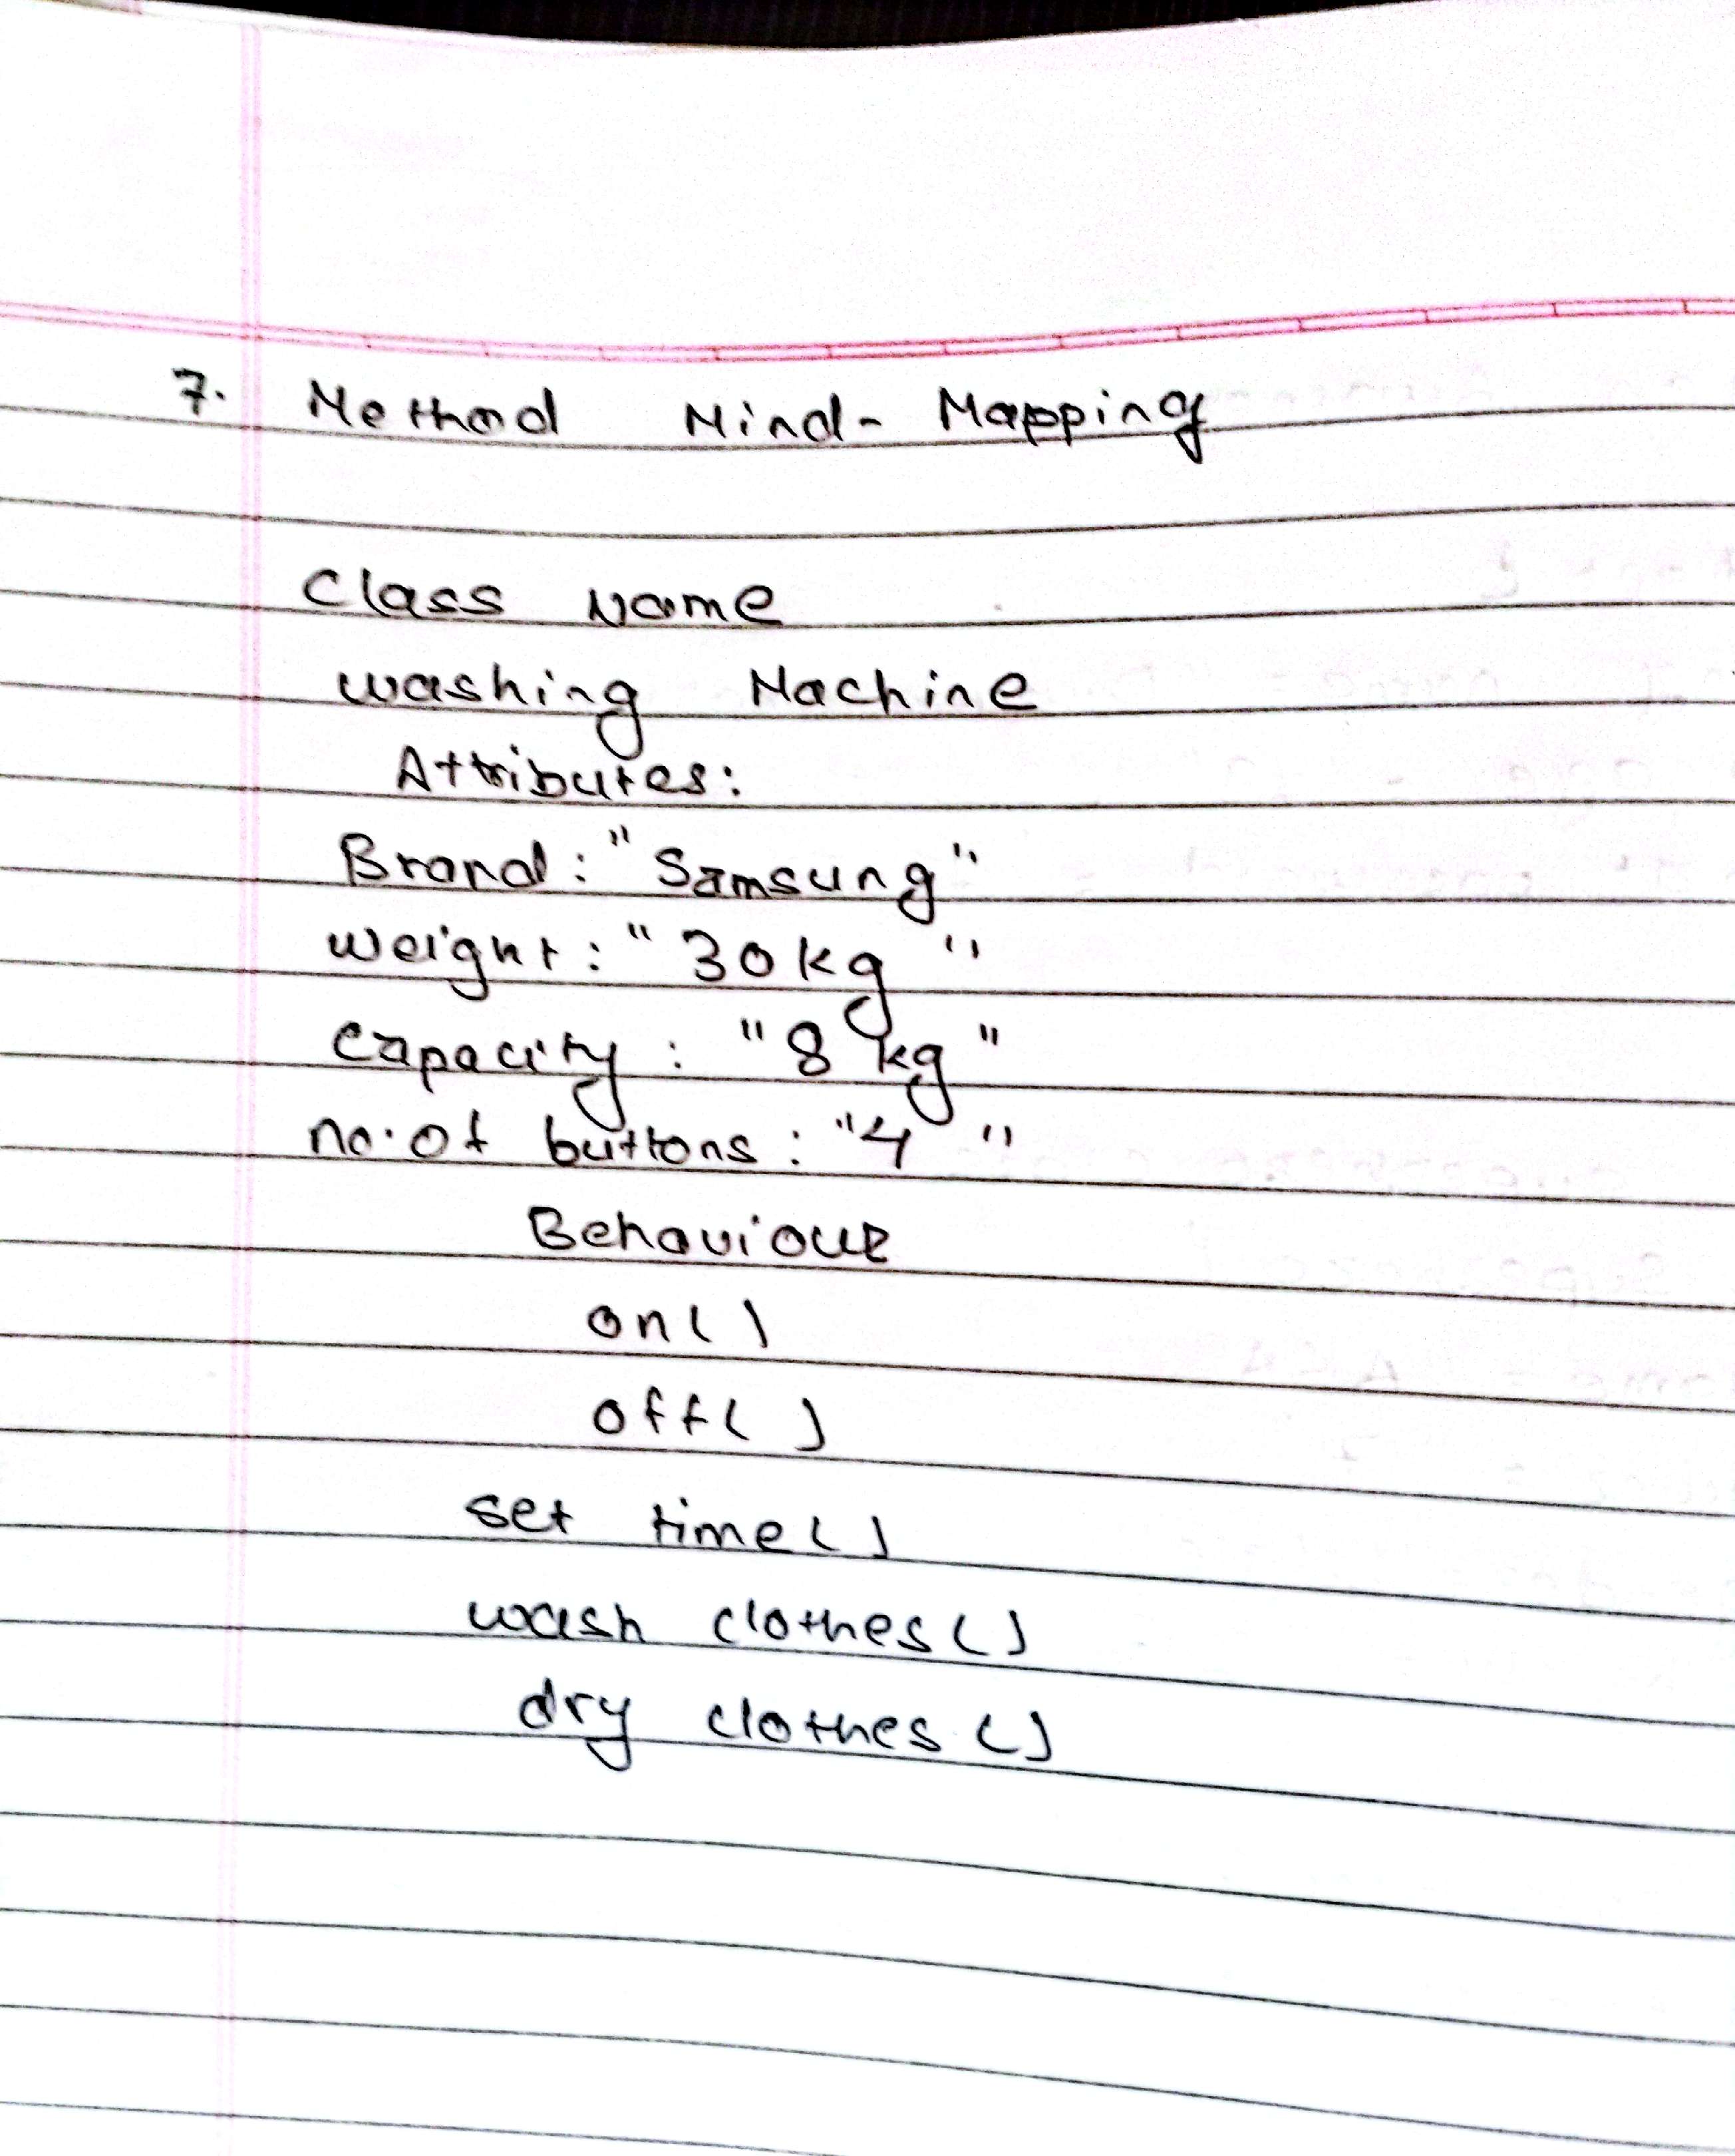 7. Method Mind- Mapping
Class Name
washing Machine
Attributes:
Brand : "Samsung"
weight : "30kg"
capacity : "8 kg"
no. of buttons : "4"
Behaviour
on()
off()
set time()
wash clothes()
dry clothes()